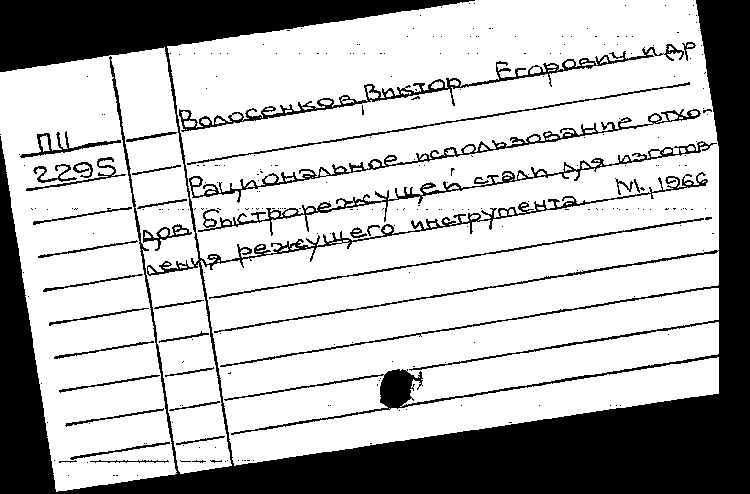 Волосенков, Виктор Егорович и др
П11
2295
Рациональное использование отхо-
дов быстрорежущей стали для изготов-
ления режущего инструмента. М., 1966